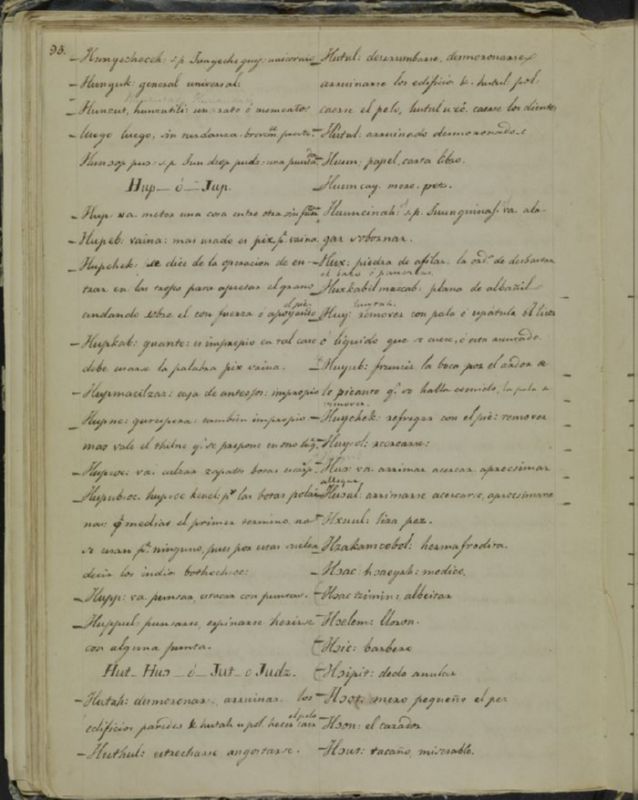 93.
Hunyechecek: s.p Junyecheguy: unicornio
Hunguk: general universal:
Huncut, huncutili: un rato ó momento:
luego luego, sin tardanza: brevem.te presto.
Hunsop pus: s.p Jun dzop pudz: una puntada
Hup_ ó _ Jup.
Hup: va meter una cosa entre otra sin fuerza
Hupeb: vaina: mas usado es pix p.a vaina
Hupchek: se dice de la operacion de en-
trar en las tropes para apretar el grano
andando sobre el con fuerza ó apoyando el pie
Hupkab: guante: es impropio en tal caso
debe usarse la palabra pix vaina.
Hupmacilzac: caja de anteojos: impropio
Hupne: gurupera: tambien impropio
mas vale el thilne q.e se propone en su lug.
va: calzar zapatos botas
p.r las botas
medias el primer termino, no
se usan p.r ninguno, pues por estas suelen
decir los indios bothoch:oc:
Hupp: va punzar, estacar con puntas.
Huppul: punzarse, espinarse herirse
con alguna punta.
Hut_ Huɔ _ ó _ Jut _ ó Judz.
Hutah: desmoronar, arruinar los
edificios paredes & hutah u pol hacer caer el pelo
Huthul: estrecharse angostarse.
Hutul: derrumbarse, desmoronarse
arruinarse los edificio &. hutul pol
caerse el pelo, hutul u co. caerse los dientes
Hutul: arruinado desmoronado.
Huun: papel, carta libro.
Huun cay. mero. pez.
s.p. va. ala-
gar sobornar.
Hux: piedra de afilar. la ord.a de desbastar
el palo ó
Huxkabilmazcab: plana de albañil
Huy: remover con pala ó espátula el licor
ó liquido que se cuece, ó esta asentado
Huyub: fruncir la boca por el ardor de
lo picante q.e se halla comido, la pala de
remover.
Huychek: refregar con el pie: remover
Huyel: acercarse:
Huɔ va arrimar acercar, aprocsimar
allegar
Huɔul: arrimarse acercarse, aprocsimarse
Hxuul: lisa pez.
Hzakamcobol: hermafrodita.
Hɔac: hɔacyah: medico.
Hɔactzimin: albeitar
Hɔelem: lloron.
Hɔic: barbero
Hɔipit: dedo anular
Hɔot: mero pequeño el pez
Hɔon: el cazador
Hɔut: tacaño, miserable.